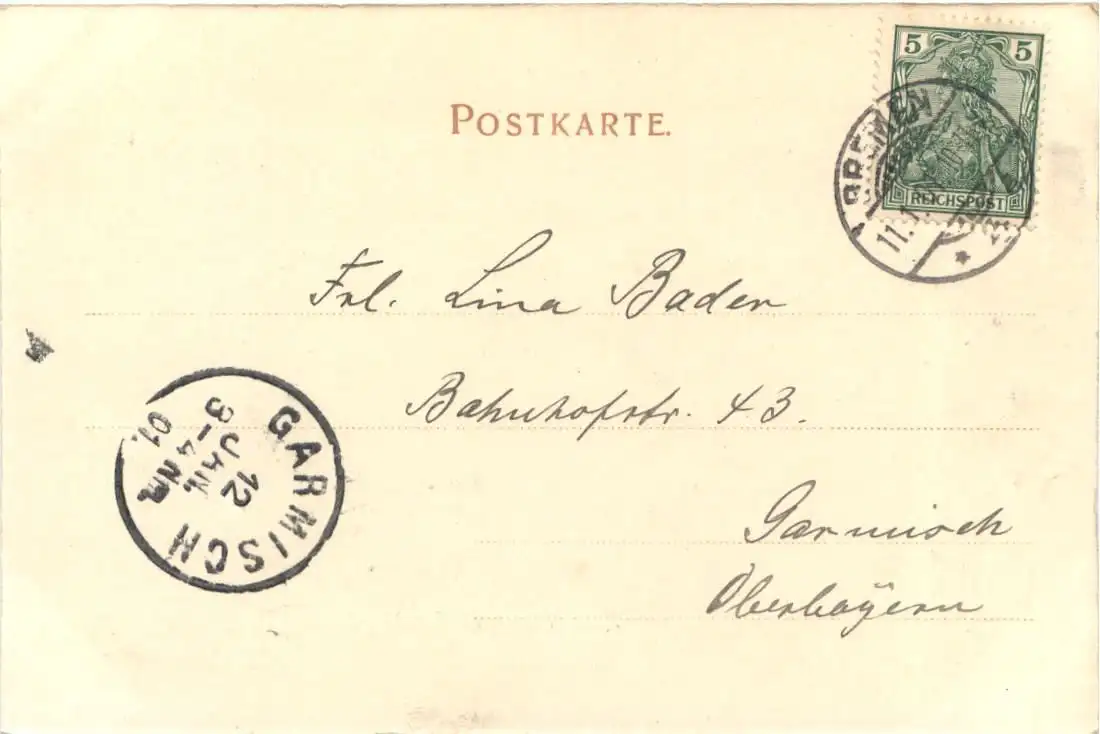 5 5
POSTKARTE.
BREMEN
11.1.
REICHSPOST
Frl. Lina Bader
Bahnhofstr. 43.
Garmisch
Oberbayern
GARMISCH
12
JAN.
3-4 Nm.
01.